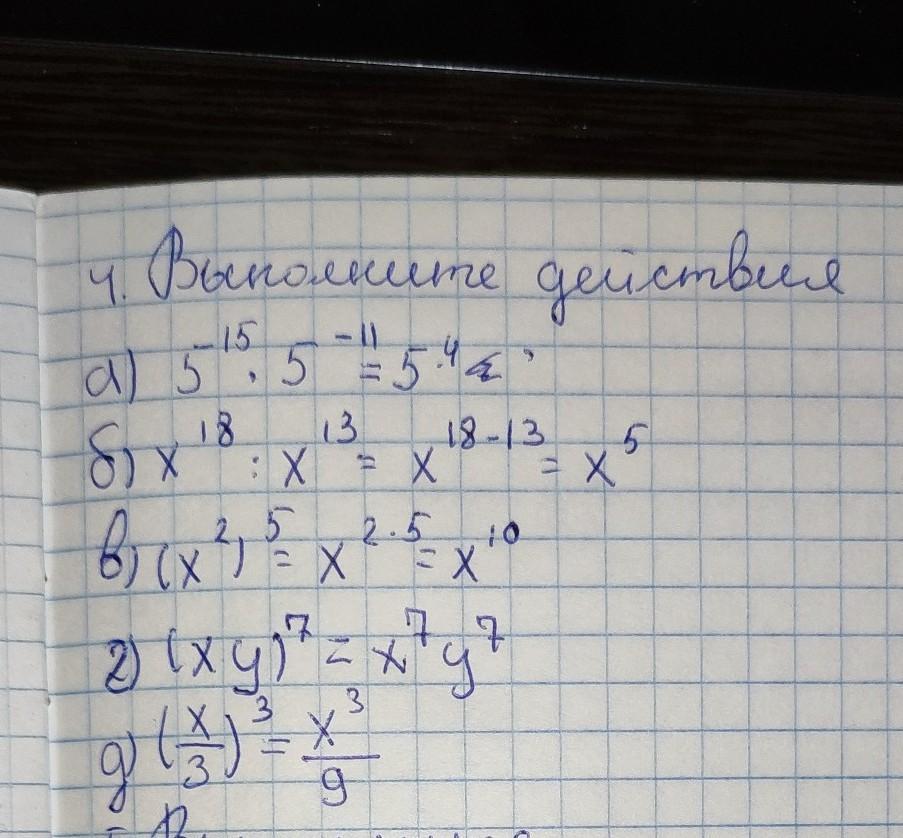 4. Выполните действия
а) 5⁻¹⁵ · 5⁻¹¹ = 5·⁴
б) x¹⁸ : x¹³ = x¹⁸⁻¹³ = x⁵
в) (x²)⁵ = x²·⁵ = x¹⁰
г) (xy)⁷ = x⁷y⁷
д) (x/3)³ = x³/9